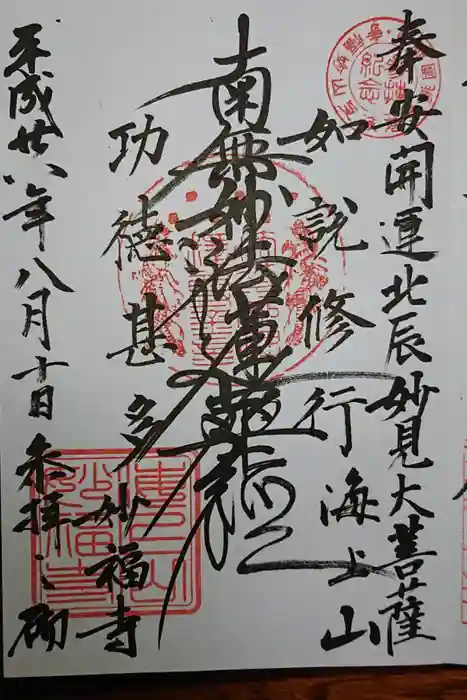 奉安開運北辰妙見大菩薩
如説修行海上山
南無妙法蓮華経
功徳甚多妙福寺
平成廿八年八月十日参拝之砌